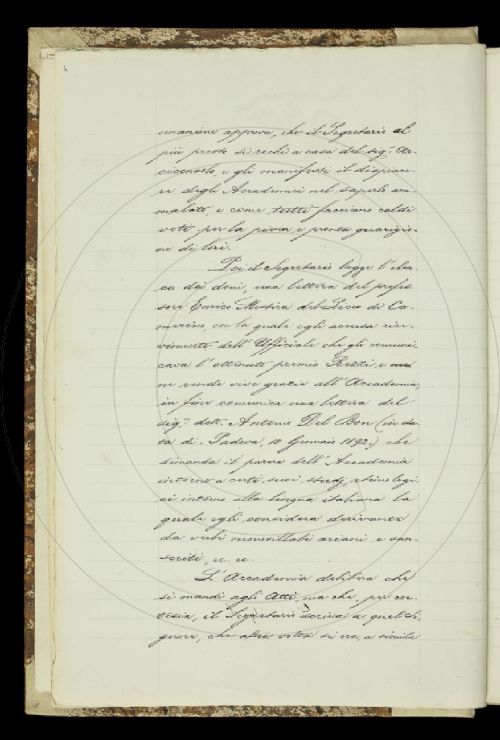 unanime approva, che il Segretario al
più presto si rechi a casa del sig.r Ar-
ciconsolo, e gli manifesti il dispiace-
re degli Accademici nel saperlo am-
malato, e come tutti facciano caldi
voti per la piena e pronta guarigio-
ne di lui.
Poi il Segretario legge l'elen-
co dei doni, una lettera del profes-
sore Enrico Mestica del Liceo di Ca-
merino, con la quale egli accusa rice-
vimento dell'Ufficiale che gli comuni-
cava l'ottenuto premio Rezzi, e
ne rende vive grazie all'Accademia;
in fine comunica una lettera del
sig.r dott. Antonio Del Bon (in da-
ta di Padova, 10 Gennaio 1892) che
dimanda il parere dell'Accademia
intorno a certi suoi studj etimologi-
ci intorno alla lingua italiana la
quale egli considera derivante
da verbi monosillabi ariani e san-
scriti, ec. ec.
L'Accademia delibera che
si mandi agli Atti, ma che, per cor-
tesia, il Segretario scriva a quel Si-
gnore, che altra volta si era, a simile